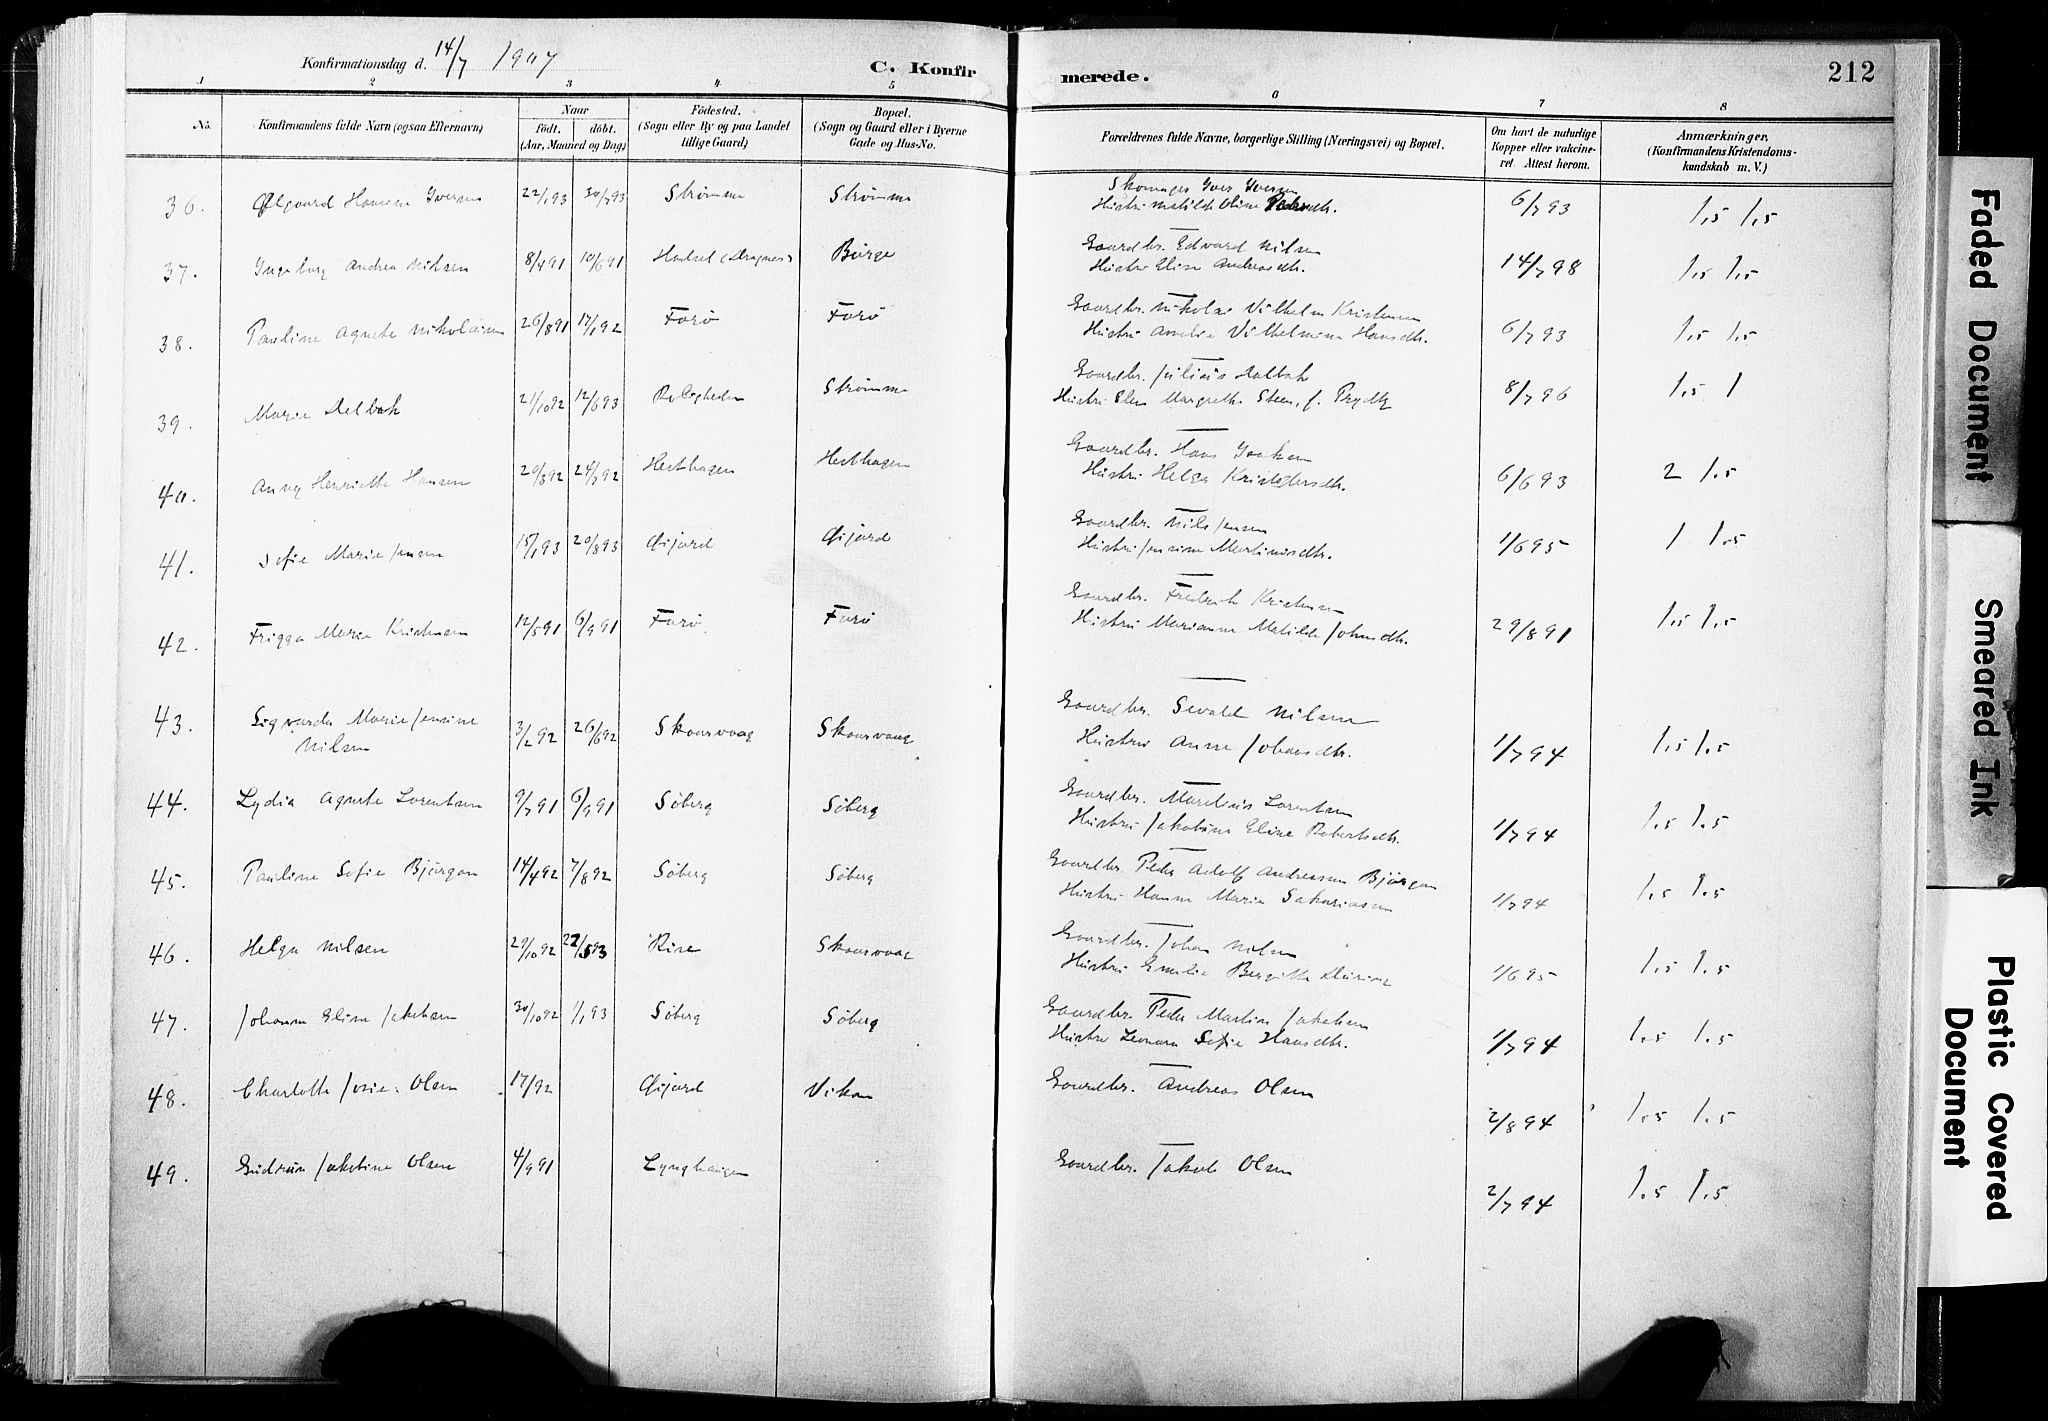 Konfirmationsdag d. 14/7 1907
C. Konfirmerede.
212
1 2 3 4 5 6 7 8
No.
Konfirmandens fulde Navn (ogsaa Efternavn)
Naar
födt. döbt.
(Aar, Maaned og Dag)
Födested.
(Sogn eller By og paa Landet
tillige Gaard)
Bopæl.
(Sogn og Gaard eller i Byerne
Gade og Hus-No.
Forældrenes fulde Navne, borgerlige Stilling (Næringsvei) og Bopæl.
Om havt de naturlige
Kopper eller vakcine-
ret. Attest herom.
Anmærkninger.
(Konfirmandens Kristendoms-
kundskab m. V.)
36. Ølgaard Hansine Iversen 22/1 93 30/7 93 Strømme Strømme Iver Iversen 6/7 93 1,5 1,5
Hustru Matilde Oline Pedersdtr.
37. Ingeborg Andrea Nilsen 8/4 91 10/6 91 Hadsel (Dragnes) Børge Gaardbr. Edvard Nilsen 14/7 98 1,5 1,5
Hustru Elise Andreasdtr.
38. Pauline Agnete Nikolaisen 26/8 91 17/1 92 Forø Forø Gaardbr. Nikolai Vilhelm Kristensen 6/7 93 1,5 1,5
Hustru Amalie Vilhelmine Hansdtr.
39. Marie Dalbak 21/10 92 12/6 93 Roligheden Strømme Gaardbr. Julius Dalbak 8/7 96 1,5 1
Hustru Elen Margrethe Steen, f. Prydtz
40. Anny Henriette Hansen 20/3 92 24/7 92 Hesthagen Hesthagen Gaardbr. Hans 6/6 93 2 1.5
Hustru Helga
41. Sofie Marie Jensen 15/1 93 20/8 93 Gjjord Gjjord Gaardbr. Nils Jensen 1/6 95 1 1.5
Hustru Jensine Martinusdtr.
42. Frigga Marie Kristensen 12/5 91 6/9 91 Forø Forø Gaardbr. Fredrik Kristensen 29/8 91 1,5 1,5
Hustru Marianne Matilde Johnsdtr.
43. Sigvarda Marie Jensine 3/2 92 26/6 92 Skaarvaag Skaarvaag Gaardbr. Sevald Nilsen 1/7 94 1,5 1,5
Nilsen Hustru Anne Johansdtr.
44. Lydia Agnete Lorentsen 9/7 91 6/9 91 Søberg Søberg Gaardbr. Marelius Lorentsen 1/7 94 1.5 1.5
Hustru Jakobine Eline Robertsdtr.
45. Pauline Sofie Bjørgan 14/4 92 7/8 92 Søberg Søberg Gaardbr. Peder Adolf Andreassen Bjørgan 1/7 94 1.5 1.5
Hustru Hanna Marie Sakariassen
46. Helga Nilsen 29/10 92 22/5 93 Rise Skaarvaag Gaardbr. Johan Nilsen 1/6 95 1,5 1.5
Hustru Emilie Bergitte
47. Johanna Eline Jakobsen 30/10 92 1/1 93 Søberg Søberg Gaardbr. Peder Martin Jakobsen 1/7 94 1.5 1.5
Hustru Leonora Sofie Hansdtr.
48. Charlotte Olsen Gjjord Vikan Gaardbr. Andreas Olsen 2/8 94 1.5 1.5
49. Gudrun Jakobine Olsen 4/9 91 Lynghaugen Gaardbr. Jakob Olsen 2/7 94 1.5 1.5
Faded Document
Smeared Ink
Plastic Covered
Document